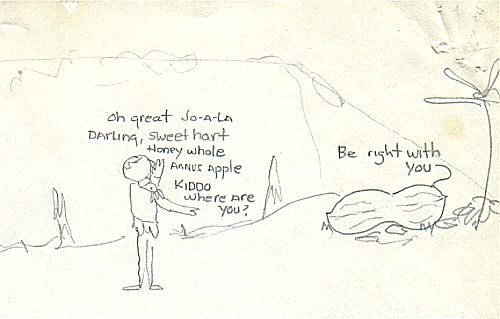 Oh great Jo-A-La
DARLing, sweet hart
Honey whole
ANNUS Apple
KIDDO
Where ARe
you?
Be right with
you